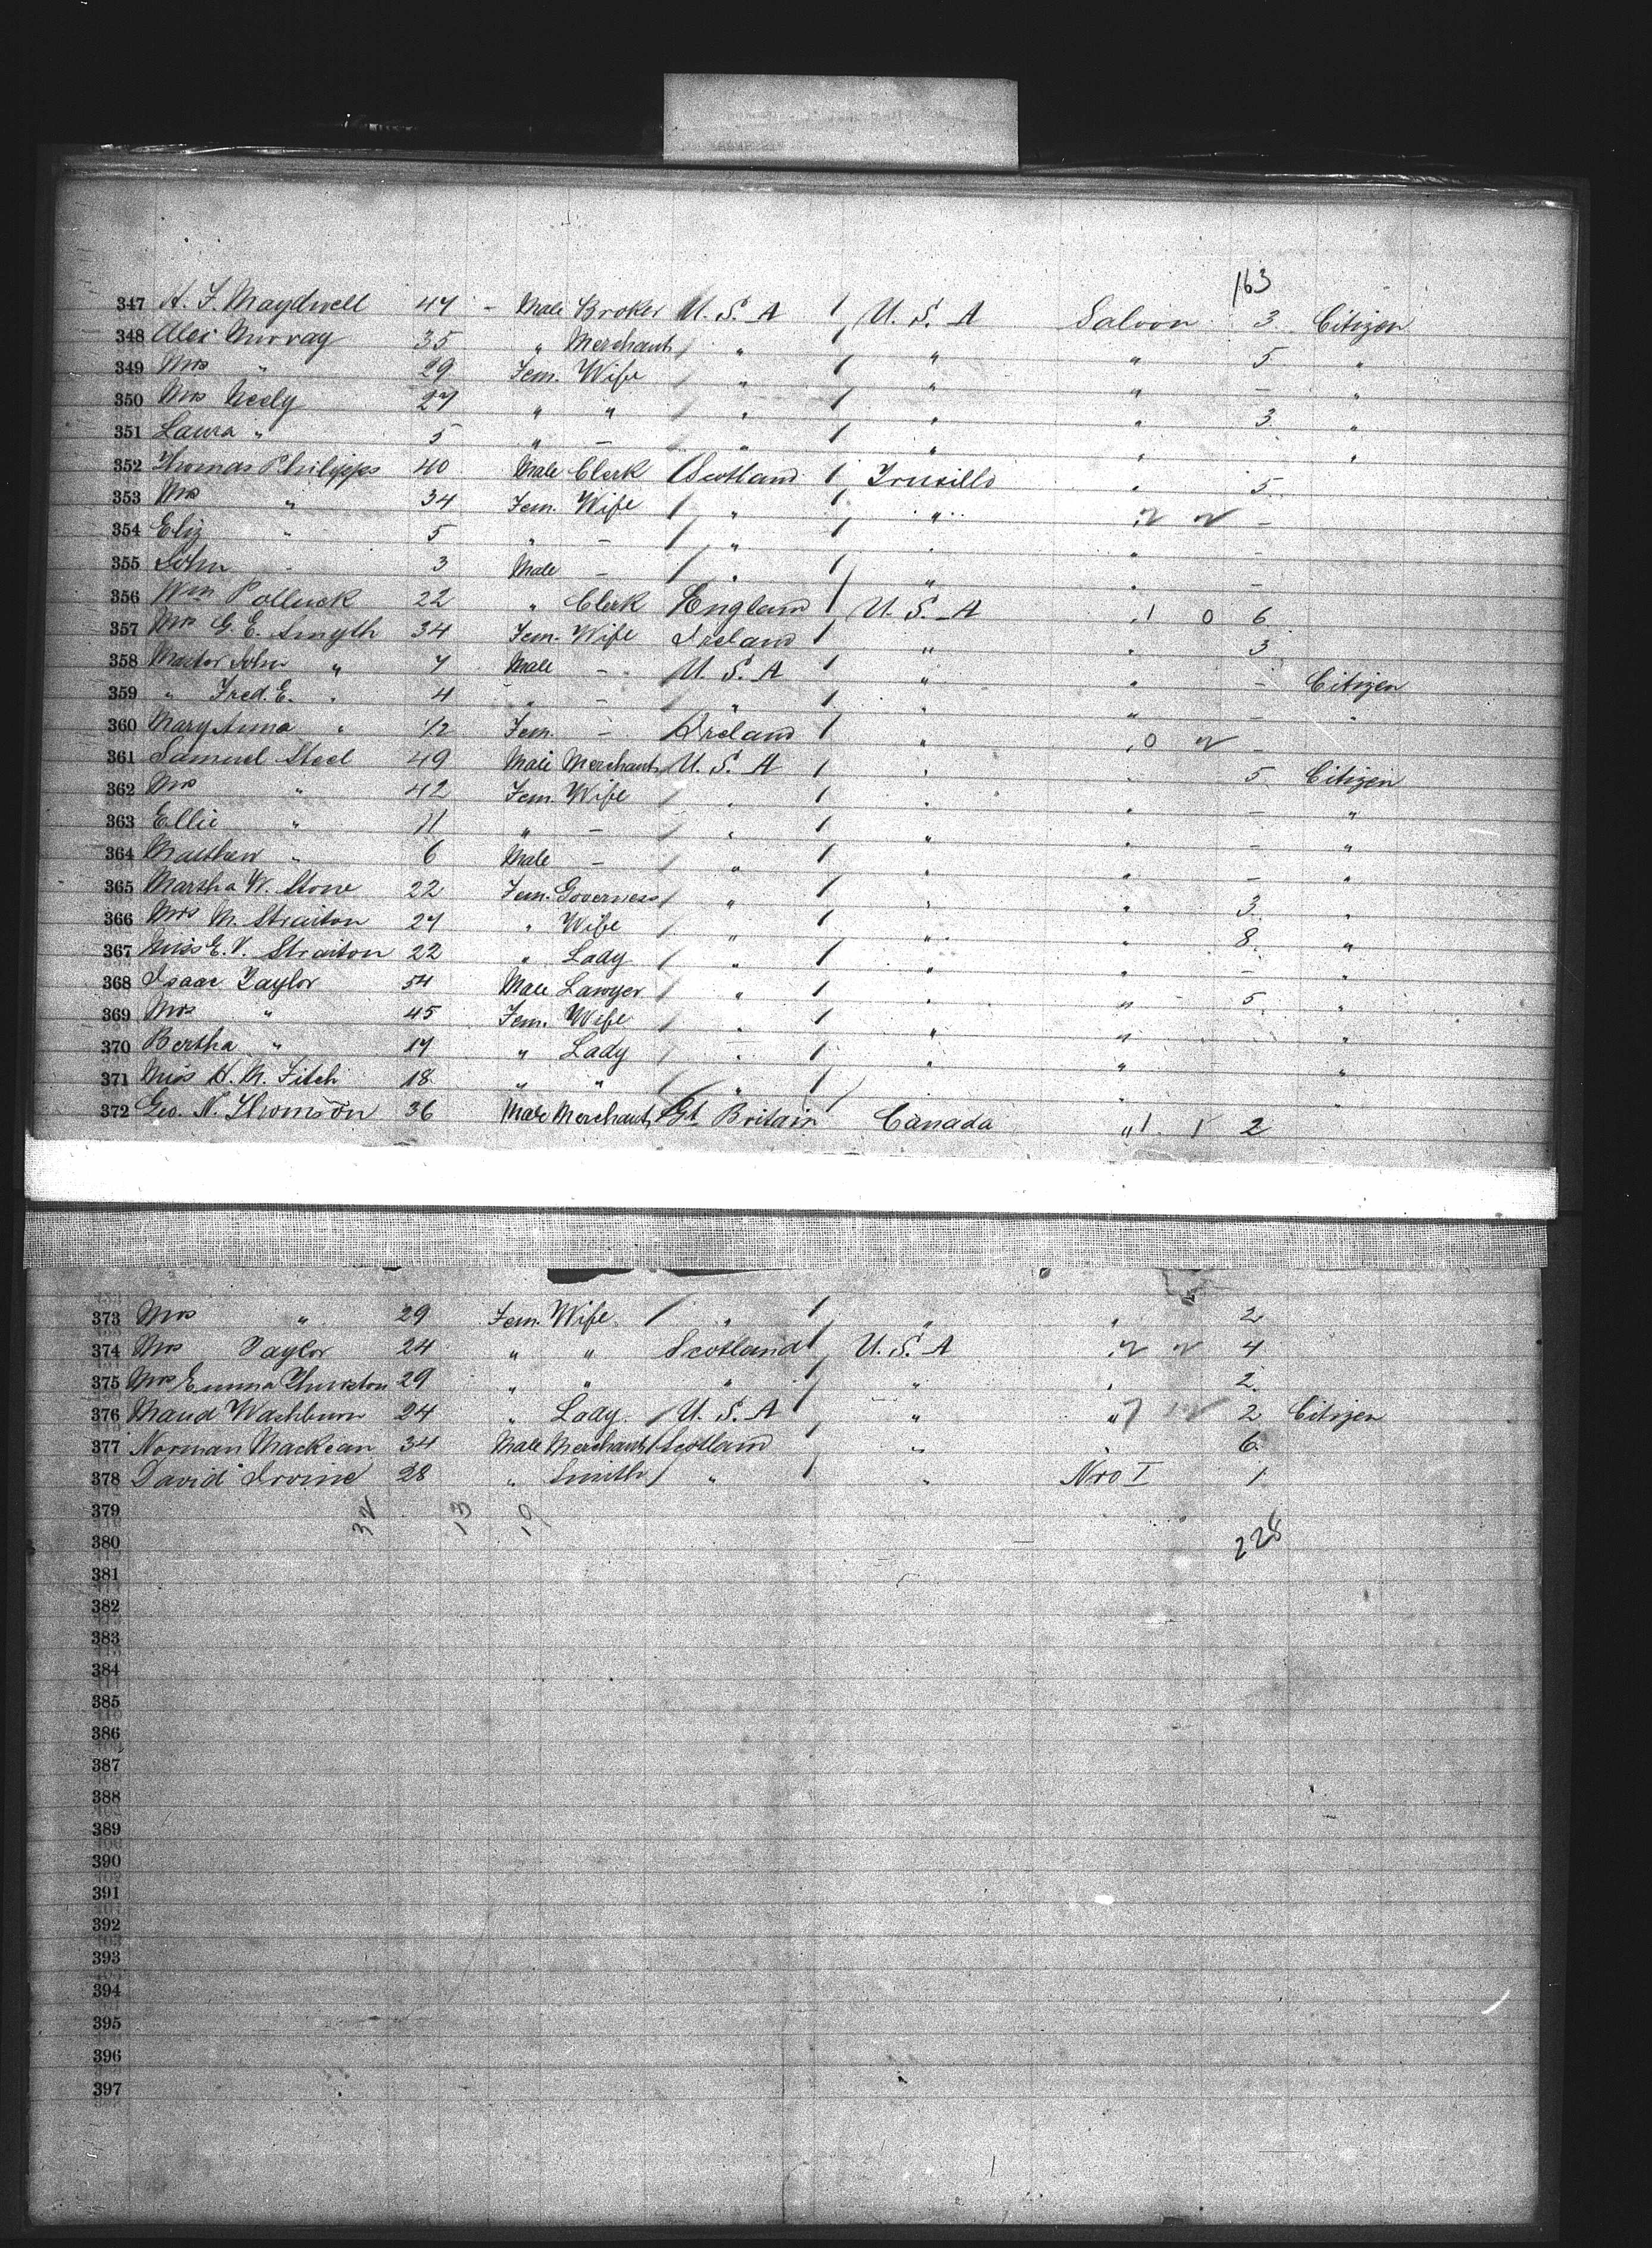 163
347 A. F. Maydwell 47 - Male Broker U. S. A U. S. A Saloon 3 Citizen
348 Alex Murray 35 " Merchant " " " 5 "
349 Mrs " 29 Fem. Wife " " " - "
350 Mrs Neely 27 " " " " " 3 "
351 Laura " 5 " - " " " "
352 Thomas Philipps 40 Male Clerk Scotland Truxillo " 5
353 Mrs " 34 Fem. Wife " " " -
354 Eliz " 5 " - " " " -
355 John " 3 Male - " " " -
356 Wm Polluck 22 " Clerk England U. S. A " 1 0 6
357 Mrs G. E. Smyth 34 Fem. Wife Ireland " " 3
358 Master John " 7 Male - U. S. A " " - Citizen
359 " Fred. E. " 4 " - " " " - "
360 Mary Anna " 1/2 Fem. - Ireland " " 0 -
361 Samuel Steel 49 Male Merchant U. S. A " " 5 Citizen
362 Mrs " 42 Fem. Wife " " " - "
363 Ellie " 11 " - " " " - "
364 Matthew " 6 Male - " " " - "
365 Martha W. Stone 22 Fem. Governess " " " 3 "
366 Mrs M. Straiton 27 " Wife " " " 8 "
367 Miss E. V. Straiton 22 " Lady " " " - "
368 Isaac Taylor 54 Male Lawyer " " " 5 "
369 Mrs " 45 Fem. Wife " " " "
370 Bertha " 17 " Lady " " " "
371 Miss H. M. Fitch 18 " " " " "
372 Geo. N. Thomson 36 Male Merchant Gt Britain Canada " 1 1 2
373 Mrs " 29 Fem. Wife " " " 2
374 Mrs Taylor 24 " " Scotland U. S. A " 4
375 Mrs Emma Thurston 29 " " " " " 2
376 Maud Washburn 24 " Lady U. S. A " " 2 Citizen
377 Norman Mackean 34 Male Merchant Scotland " " 6
378 David Irvine 28 " Smith " " Nro I 1
379 13 19
380 228
381
382
383
384
385
386
387
388
389
390
391
392
393
394
395
396
397